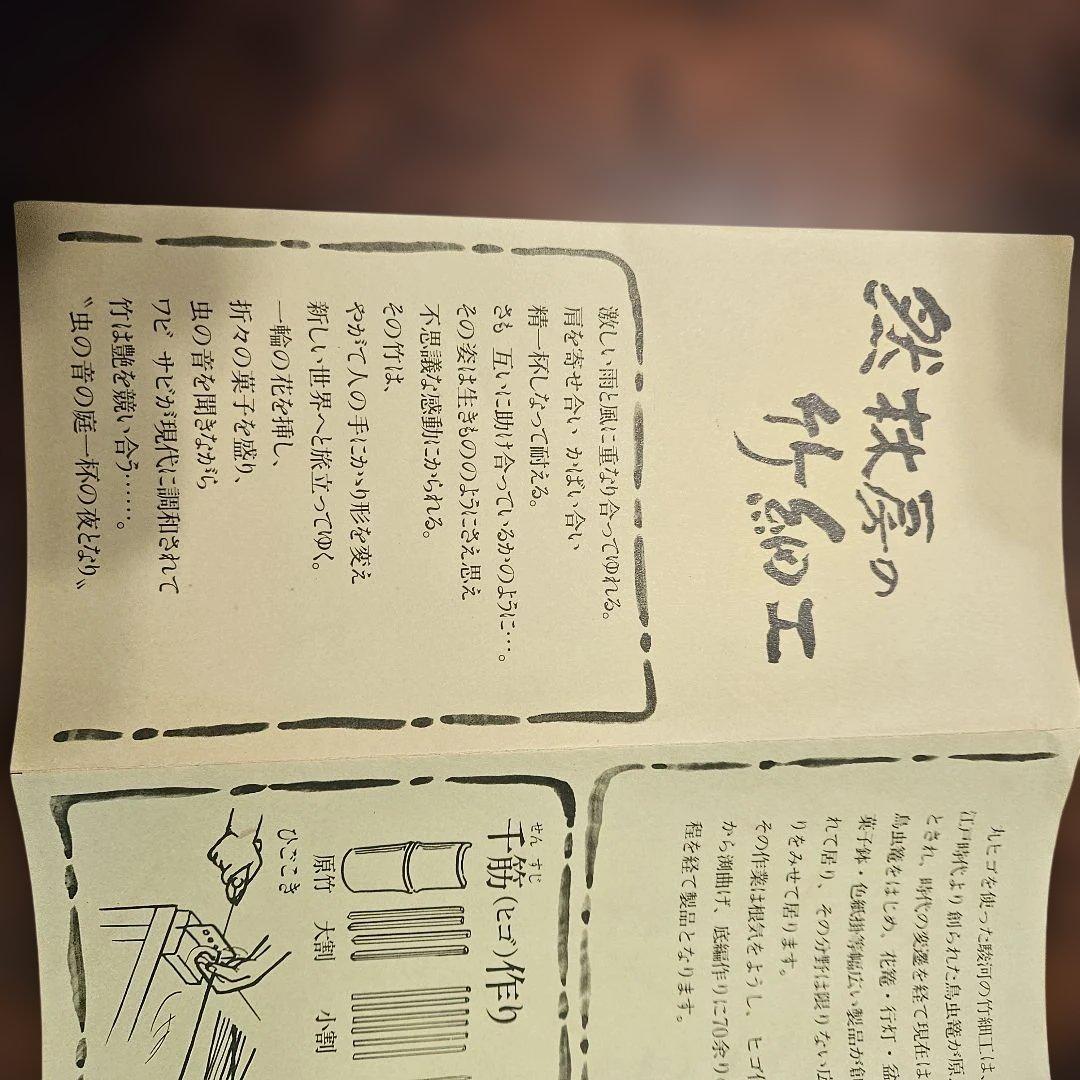 房の
竹細工
激しい雨と風に重なり合ってゆれる。
肩を寄せ合い かばい合い
精一杯しなって耐える。
さも 互いに助け合っているかのように…。
その姿は生きもののようにさえ思え
不思議な感動にかられる。
その竹は、
やがて人の手にかゝり形を変え
新しい世界へと旅立ってゆく。
一輪の花を挿し、
折々の菓子を盛り、
虫の音を聞きながら
ワビ サビが現代に調和されて
竹は艶を競い合う……。
〝虫の音の庭一杯の夜となり〟
丸ヒゴを使った駿河の竹細工は、
江戸時代より創られた鳥虫篭が原
とされ、時代の変遷を経て現在は
鳥虫篭をはじめ、花篭・行灯・盆
菓子鉢・色紙掛等幅広い製品が創
れて居り、その分野は限りない広
りをみせて居ります。
その作業は根気をようし、ヒゴ
から淵曲げ、底編作りに70余り
程を経て製品となります。
せん すじ
千筋(ヒゴ)作り
原竹 大割 小割
ひごこき